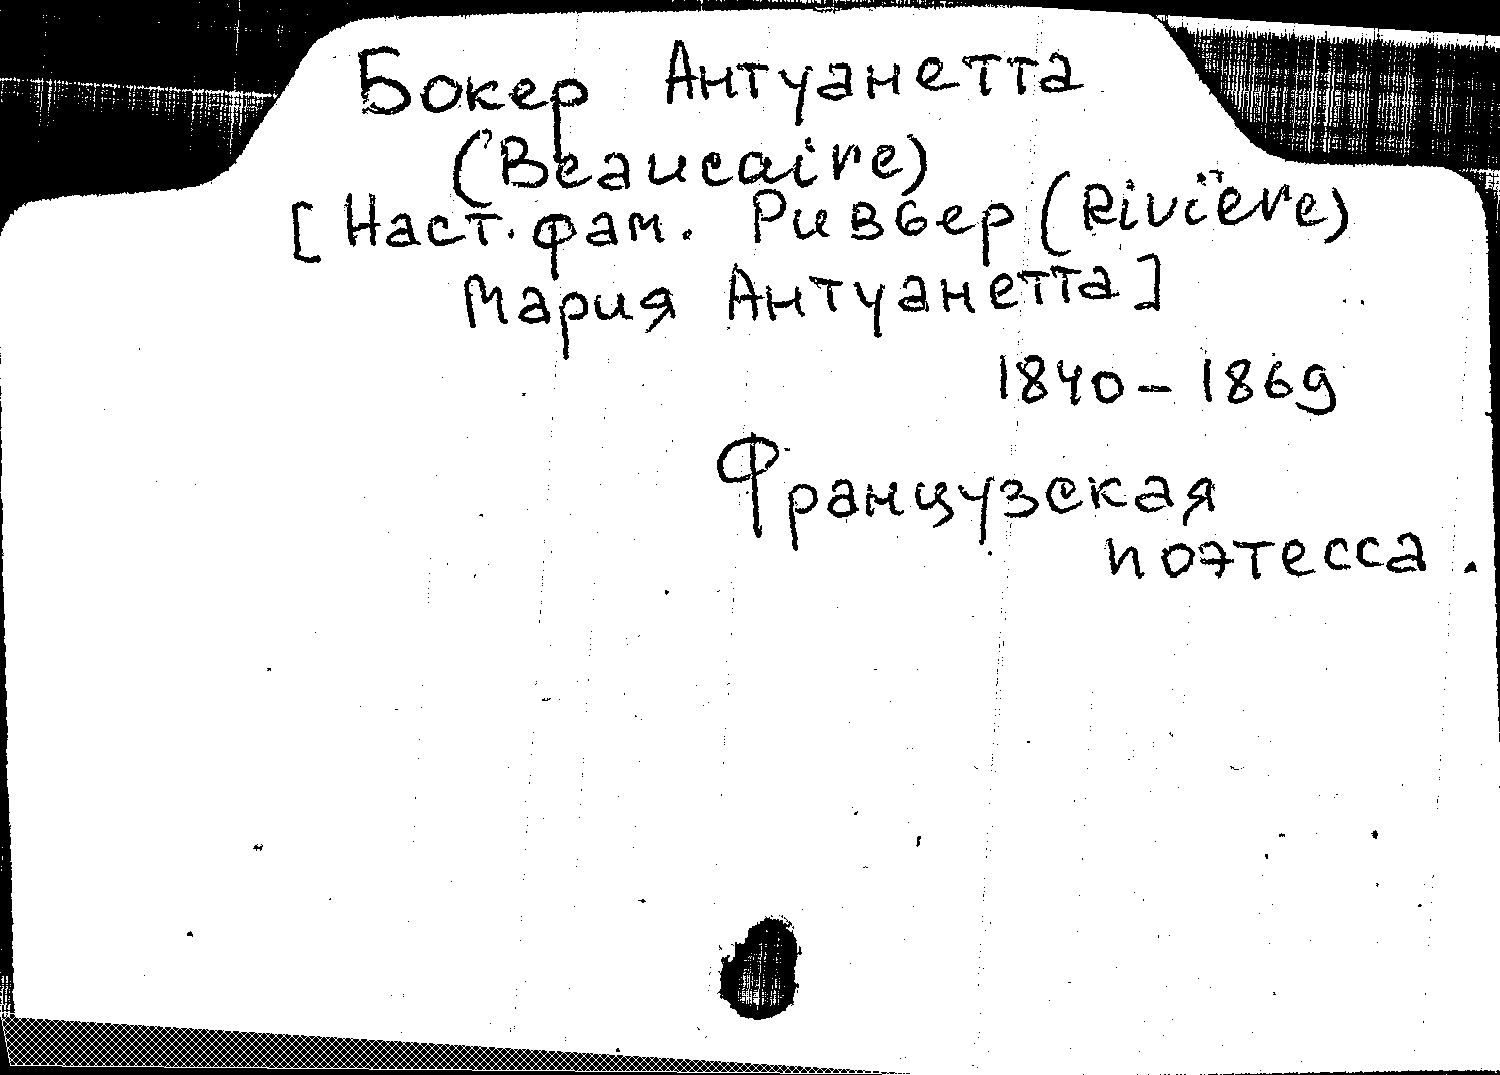 Бокер Антуанетта
(Beaucaire)
[Наст. фам. Ривьер (Rivière)
Мария Антуанетта]
1840 – 1869
Французская
поэтесса.